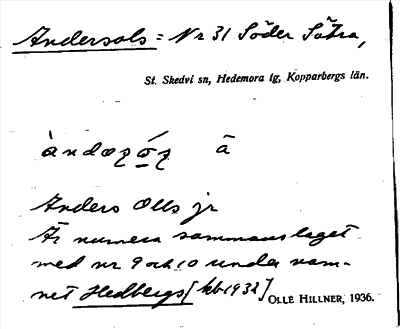 Andersols = Nr 31 Söder Sätra,
St. Skedvi sn, Hedemora tg, Kopparbergs län.
ā
Anders Olls jr
Är numera sammanslaget
med nr 9 och 10 under nam-
net Hedbergs [kb 1932]
OLLE HILLNER, 1936.